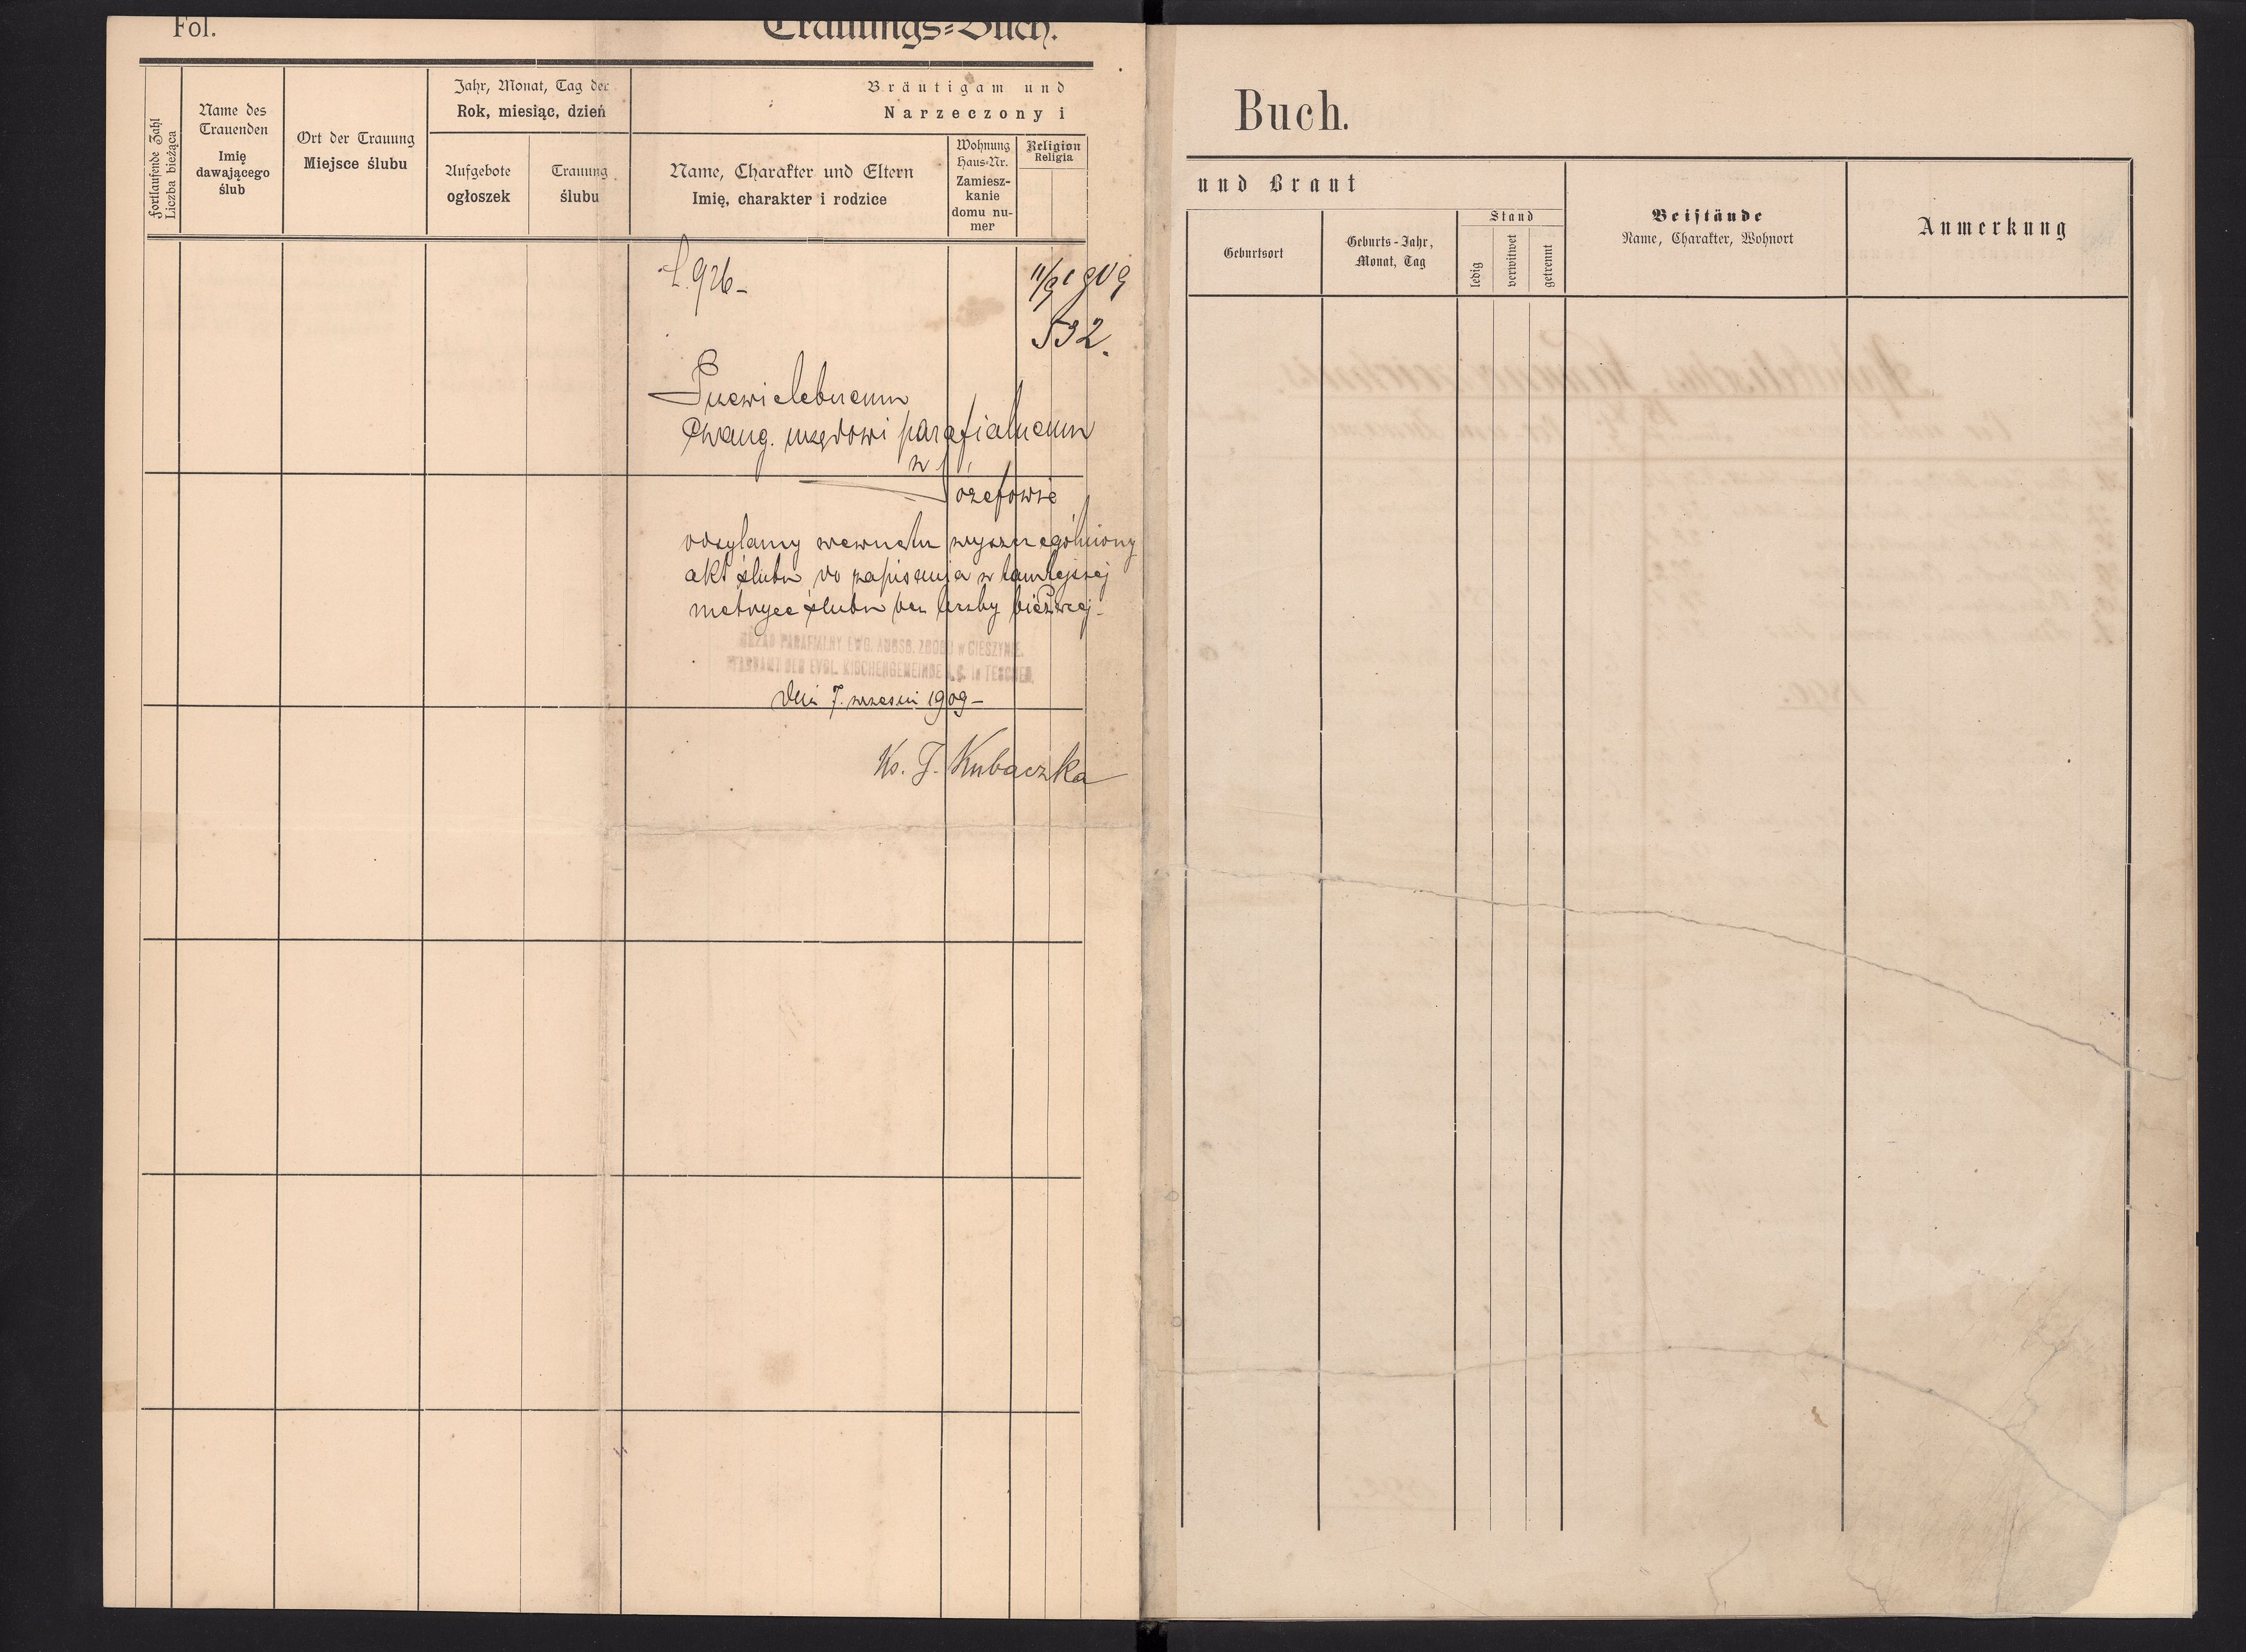 Fol.
Trauungs-Buch.
Fortlaufende Zahl
Liczba bieżąca
Name des
Trauenden
Imię
dawającego
ślub
Ort der Trauung
Miejsce ślubu
Jahr, Monat, Tag der
Rok, miesiąc, dzień
Aufgebote
ogłoszek
Trauung
ślubu
Bräutigam und
Narzeczony i
Name, Charakter und Eltern
Imię, charakter i rodzice
Wohnung
Haus-Nr.
Zamiesz-
kanie
domu nu-
mer
Religion
Religia
L. 926 –
11/9 1909
532.
Przewielebnemu
Ewang. urzędowi parafialnemu
w
Józefowie
odsyłamy wewnątrz wyszczególniony
akt ślubu do zapisania w tamtejszej
metryce ślubu bez liczby bieżącej.
URZĄD PARAFIALNY EWG. AUGSB. ZBORU w CIESZYNIE.
PFARRAMT DER EVGL. KIRCHENGEMEINDE A. C. in TESCHEN.
dnia 7. wrześni 1909 –
Ks. J. Kubaczka
Buch.
und Braut
Geburtsort
Geburts-Jahr,
Monat, Tag
Stand
ledig
verwitwet
getrennt
Beistände
Name, Charakter, Wohnort
Anmerkung